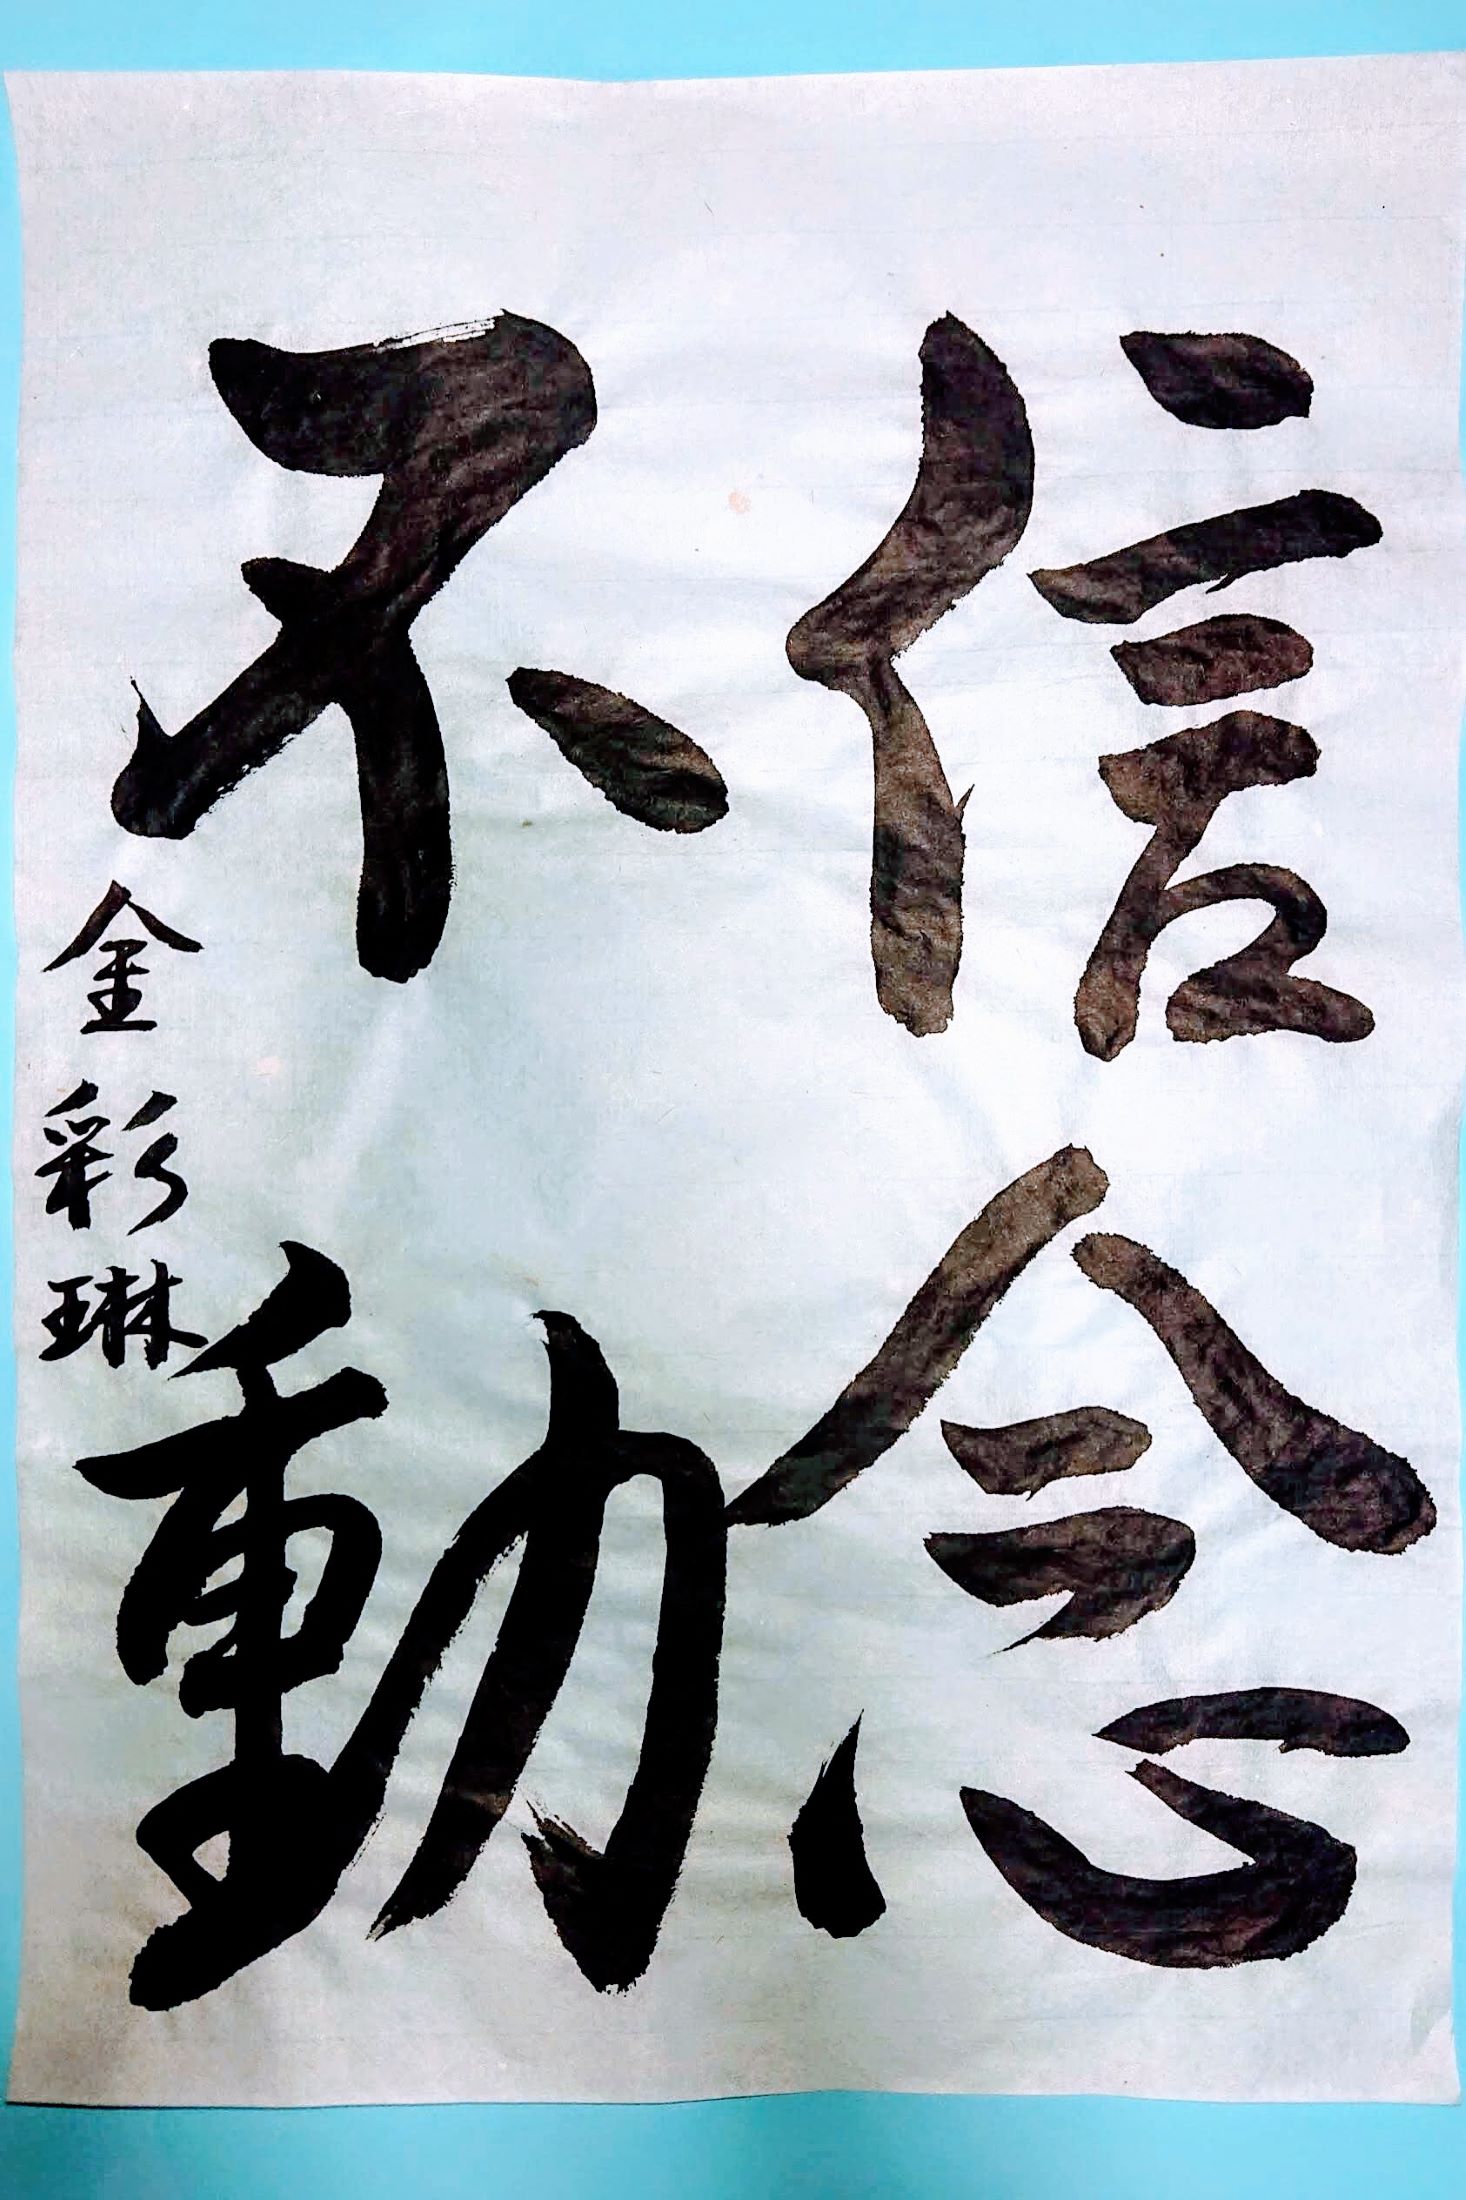 信念
不動
金彩琳